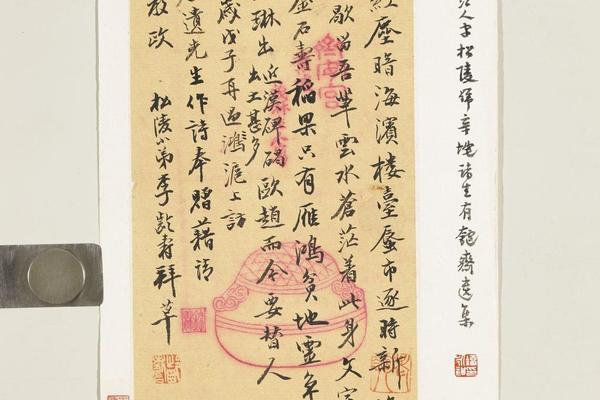 江人字松陵號辛垞諸生有齋遺集
紅塵暗海濱樓臺蜃市逐時新
歇當吾輩雲水蒼茫着此身文字
虛石壽稻果只有雁鴻貧地靈
琳出近漢碑碣歐趙而今要替人
出土甚多
歲戊子再過鴻滬上訪
遺先生作詩奉贈藉請
教政
松陵小弟李齡壽拜草